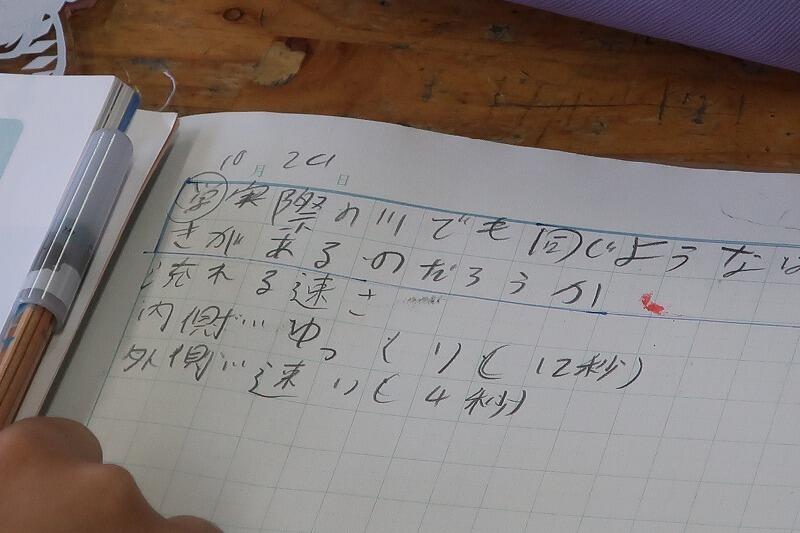 10月29日
学 実際の川でも同じような
きが来るのだろうか
流れる速さ
内側…ゆっくり(12秒)
外側…速い(4秒)